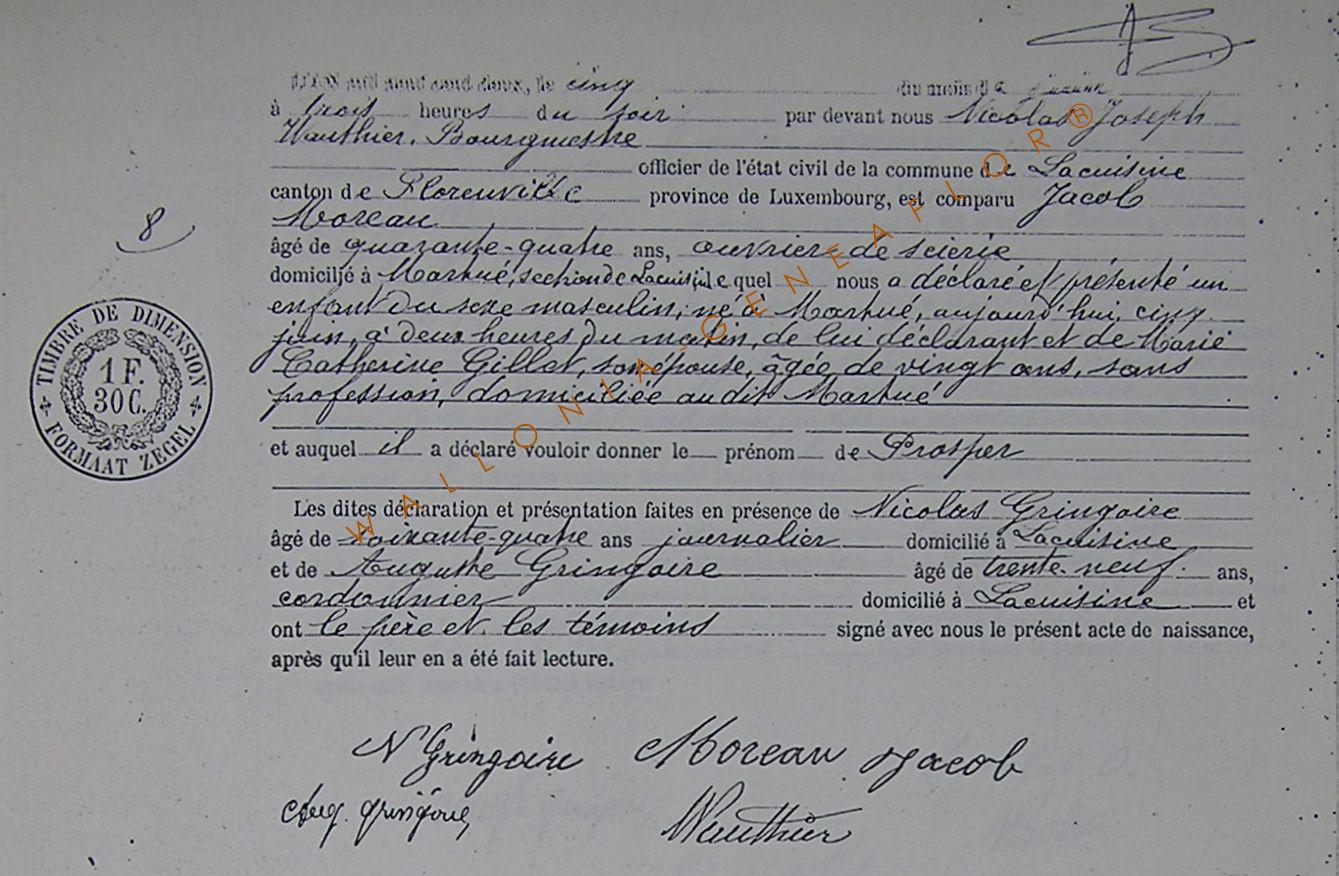 L'AN mil neuf cent deux, le cinq du mois de juin
à trois heures du soir par devant nous Nicolas Joseph
Wauthier, Bourgmestre
officier de l'état civil de la commune de Lacuisine
canton de Florenville province de Luxembourg, est comparu Jacob
Moreau
âgé de quarante-quatre ans, ouvrier de scierie
domicilié à Martué, section de Lacuisine, lequel nous a déclaré et présenté un
enfant du sexe masculin, né à Martué, aujourd'hui, cinq
juin, à deux heures du matin, de lui déclarant et de Marie
Catherine Gillet, son épouse, âgée de vingt ans, sans
profession, domiciliée audit Martué
et auquel il a déclaré vouloir donner le prénom de Prosper
Les dites déclaration et présentation faites en présence de Nicolas Gringoire
âgé de soixante-quatre ans journalier domicilié à Lacuisine
et de Auguste Gringoire âgé de trente-neuf ans,
cordonnier domicilié à Lacuisine et
ont le père et les témoins signé avec nous le présent acte de naissance,
après qu'il leur en a été fait lecture.
8
TIMBRE DE DIMENSION
1 F.
30 C.
FORMAAT ZEGEL
N Gringoire Moreau Jacob
Aug. Gringoire Wauthier
WALLONIA-GENEAFLOR®